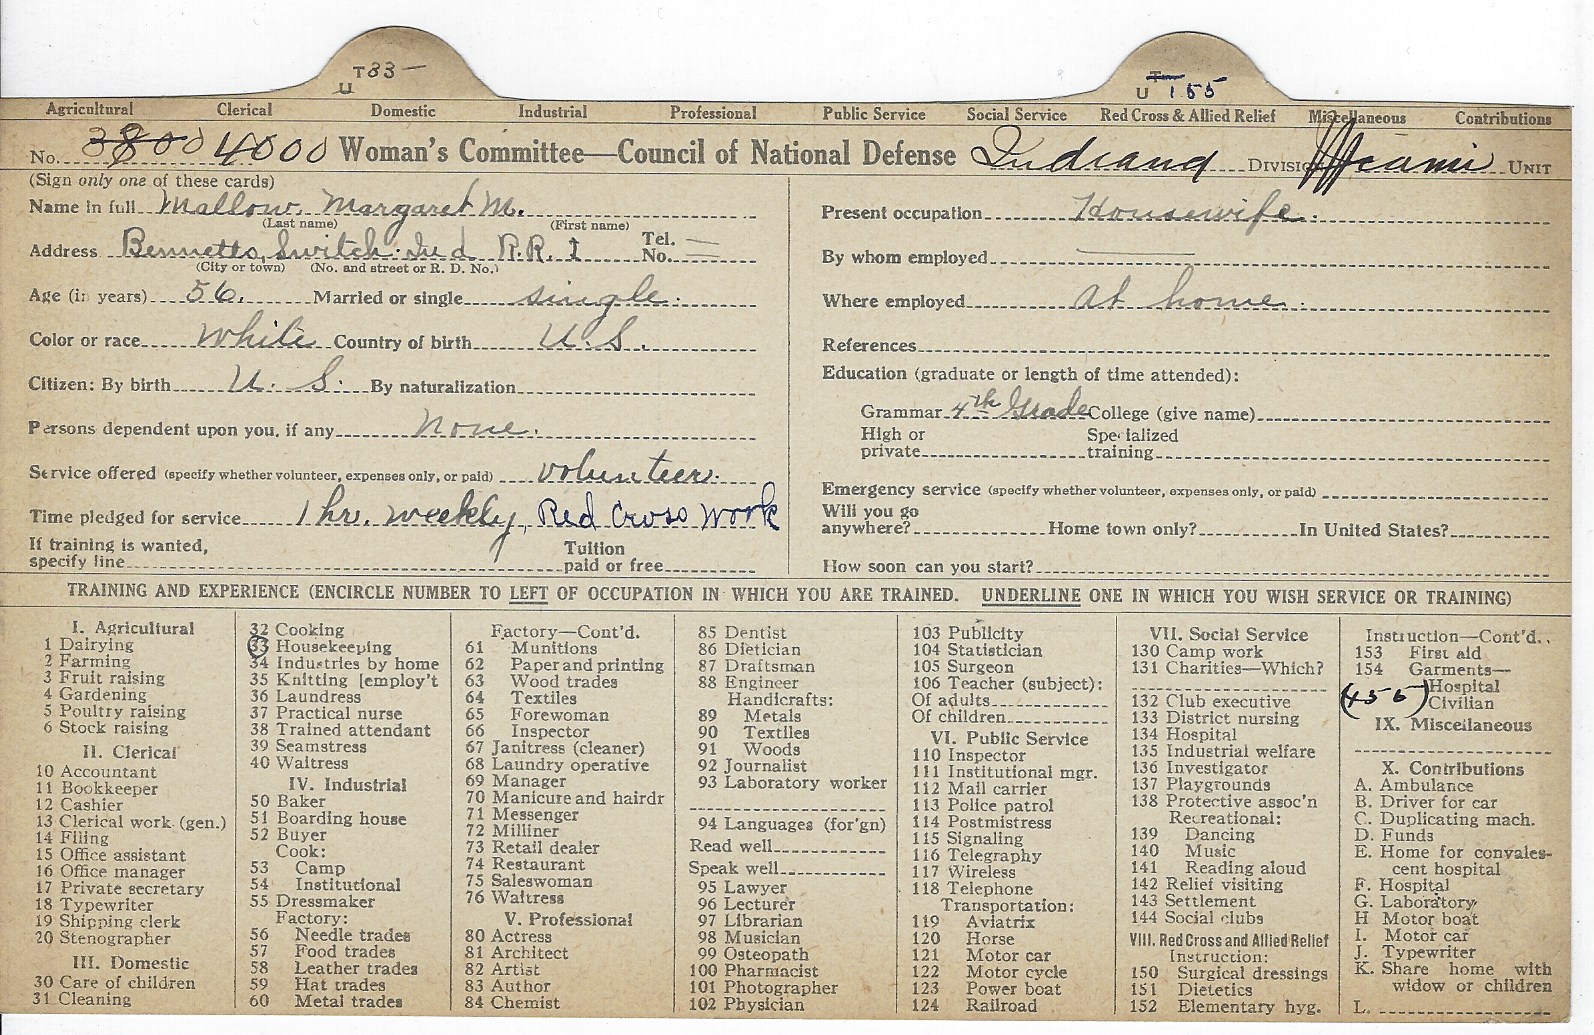 T83 —
U
T
U 155
Agricultural Clerical Domestic Industrial Professional Public Service Social Service Red Cross & Allied Relief Miscellaneous Contributions
No. 3800 4000 Woman's Committee—Council of National Defense Indiana DIVISION Miami UNIT
(Sign only one of these cards)
Name in full Mallow, Margaret M.
(Last name) (First name)
Address Bennetts Switch Ind R.R. 1 Tel. No. —
(City or town) (No. and street or R. D. No.)
Age (in years) 56. Married or single single.
Color or race White Country of birth U.S.
Citizen: By birth U. S. By naturalization
Persons dependent upon you, if any none.
Service offered (specify whether volunteer, expenses only, or paid) volunteer.
Time pledged for service 1 hr. weekly, Red Cross Work
If training is wanted, Tuition
specify line paid or free
Present occupation Housewife.
By whom employed —
Where employed at home.
References
Education (graduate or length of time attended):
Grammar 4th Grade College (give name)
High or Specialized
private training
Emergency service (specify whether volunteer, expenses only, or paid)
Will you go
anywhere? Home town only? In United States?
How soon can you start?
TRAINING AND EXPERIENCE (ENCIRCLE NUMBER TO LEFT OF OCCUPATION IN WHICH YOU ARE TRAINED. UNDERLINE ONE IN WHICH YOU WISH SERVICE OR TRAINING)
I. Agricultural
1 Dairying
2 Farming
3 Fruit raising
4 Gardening
5 Poultry raising
6 Stock raising
II. Clerical
10 Accountant
11 Bookkeeper
12 Cashier
13 Clerical work (gen.)
14 Filing
15 Office assistant
16 Office manager
17 Private secretary
18 Typewriter
19 Shipping clerk
20 Stenographer
III. Domestic
30 Care of children
31 Cleaning
32 Cooking
33 Housekeeping
34 Industries by home
35 Knitting [employ't
36 Laundress
37 Practical nurse
38 Trained attendant
39 Seamstress
40 Waitress
IV. Industrial
50 Baker
51 Boarding house
52 Buyer
Cook:
53 Camp
54 Institutional
55 Dressmaker
Factory:
56 Needle trades
57 Food trades
58 Leather trades
59 Hat trades
60 Metal trades
Factory—Cont'd.
61 Munitions
62 Paper and printing
63 Wood trades
64 Textiles
65 Forewoman
66 Inspector
67 Janitress (cleaner)
68 Laundry operative
69 Manager
70 Manicure and hairdr
71 Messenger
72 Milliner
73 Retail dealer
74 Restaurant
75 Saleswoman
76 Waitress
V. Professional
80 Actress
81 Architect
82 Artist
83 Author
84 Chemist
85 Dentist
86 Dietician
87 Draftsman
88 Engineer
Handicrafts:
89 Metals
90 Textiles
91 Woods
92 Journalist
93 Laboratory worker
94 Languages (for'gn)
Read well
Speak well
95 Lawyer
96 Lecturer
97 Librarian
98 Musician
99 Osteopath
100 Pharmacist
101 Photographer
102 Physician
103 Publicity
104 Statistician
105 Surgeon
106 Teacher (subject):
Of adults
Of children
VI. Public Service
110 Inspector
111 Institutional mgr.
112 Mail carrier
113 Police patrol
114 Postmistress
115 Signaling
116 Telegraphy
117 Wireless
118 Telephone
Transportation:
119 Aviatrix
120 Horse
121 Motor car
122 Motor cycle
123 Power boat
124 Railroad
VII. Social Service
130 Camp work
131 Charities—Which?
132 Club executive
133 District nursing
134 Hospital
135 Industrial welfare
136 Investigator
137 Playgrounds
138 Protective assoc'n
Recreational:
139 Dancing
140 Music
141 Reading aloud
142 Relief visiting
143 Settlement
144 Social clubs
VIII. Red Cross and Allied Relief
Instruction:
150 Surgical dressings
151 Dietetics
152 Elementary hyg.
Instruction—Cont'd.
153 First aid
154 Garments—
Hospital
(155) Civilian
IX. Miscellaneous
X. Contributions
A. Ambulance
B. Driver for car
C. Duplicating mach.
D. Funds
E. Home for convales-
cent hospital
F. Hospital
G. Laboratory
H Motor boat
I. Motor car
J. Typewriter
K. Share home with
widow or children
L.